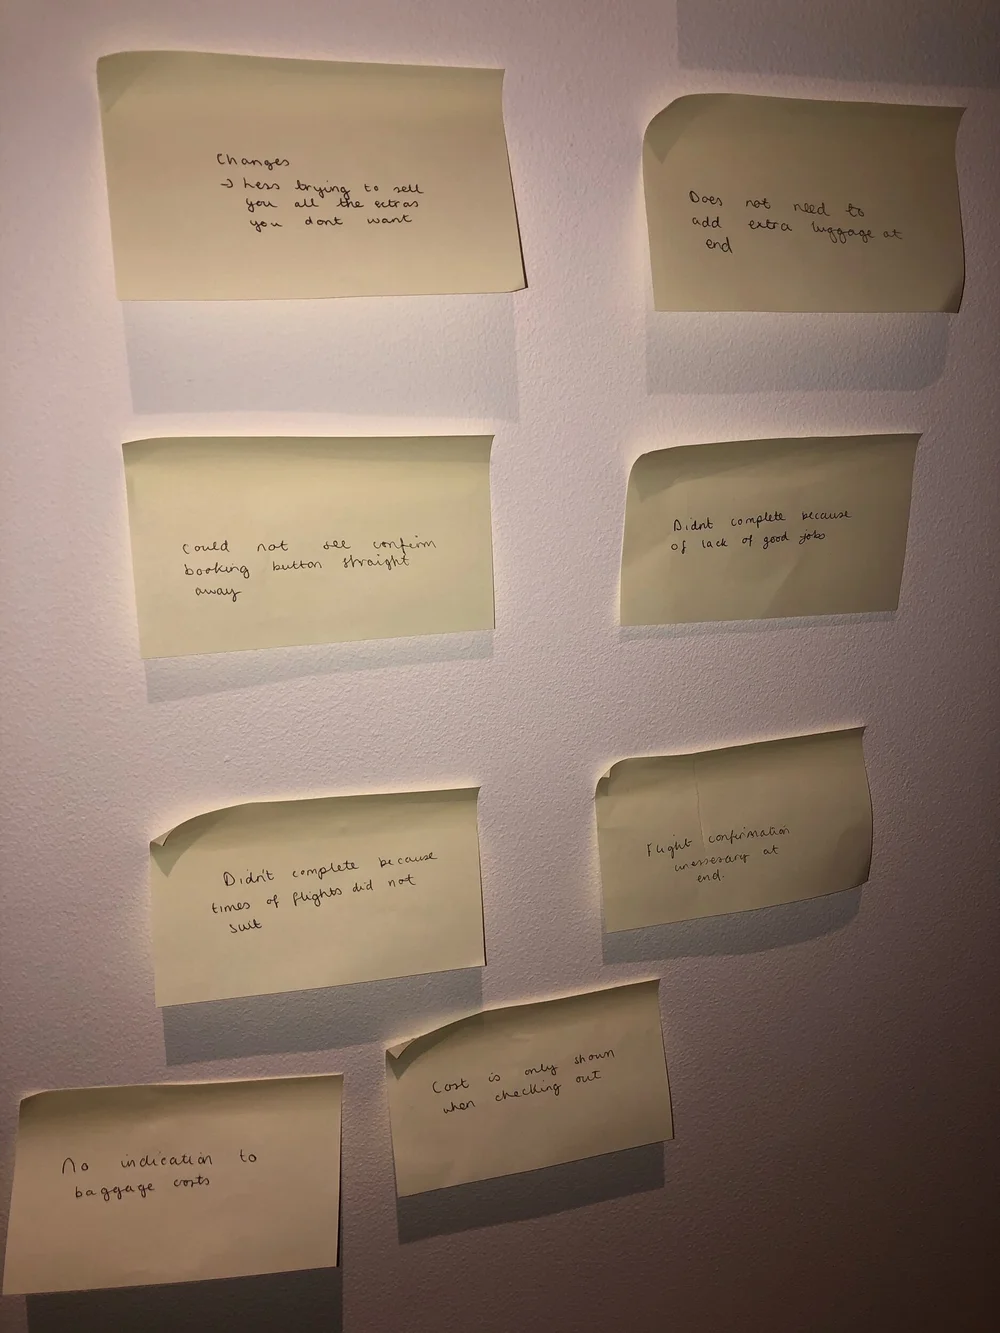 Changes
→ Less trying to sell
you all the extras
you dont want
Does not need to
add extra luggage at
end
Could not see confirm
booking button straight
away
Didnt complete because
of lack of good jobs
Didn't complete because
times of flights did not
suit
Flight confirmation
unessesary at
end.
Cost is only shown
when checking out
No indication to
baggage costs